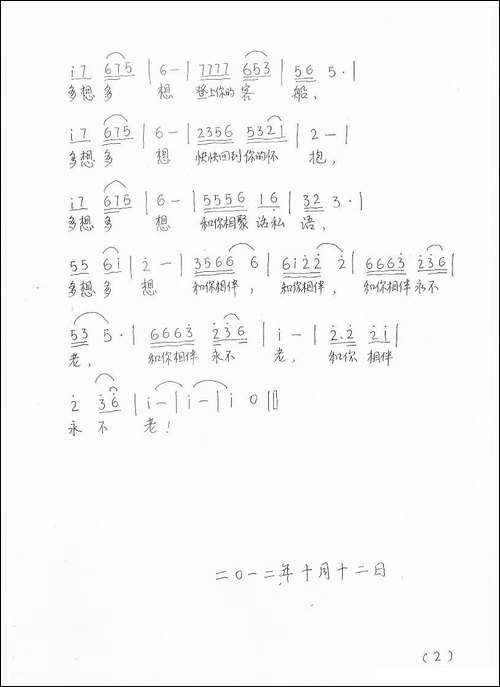 i7 675 | 6 – | 7777 653 | 56 5 · |
多想多 想 登上你的客 船，
i7 675 | 6 – | 2356 5321 | 2 – |
多想多 想 快快回到你的怀 抱，
i7 675 | 6 – | 5556 16 | 32 3 · |
多想多 想 和你相聚 话私 语，
55 6i | 2 – | 3566 6 | 6i22 2 | 6663 236 |
多想多 想 和你相伴， 和你相伴， 和你相伴永不
53 5 · | 6663 236 | i – | 2.2 2i |
老， 和你相伴 永不 老， 和你 相伴
2 36 | i – | i – | i 0 ‖
永 不 老！
二〇一二年十月十二日
（2）